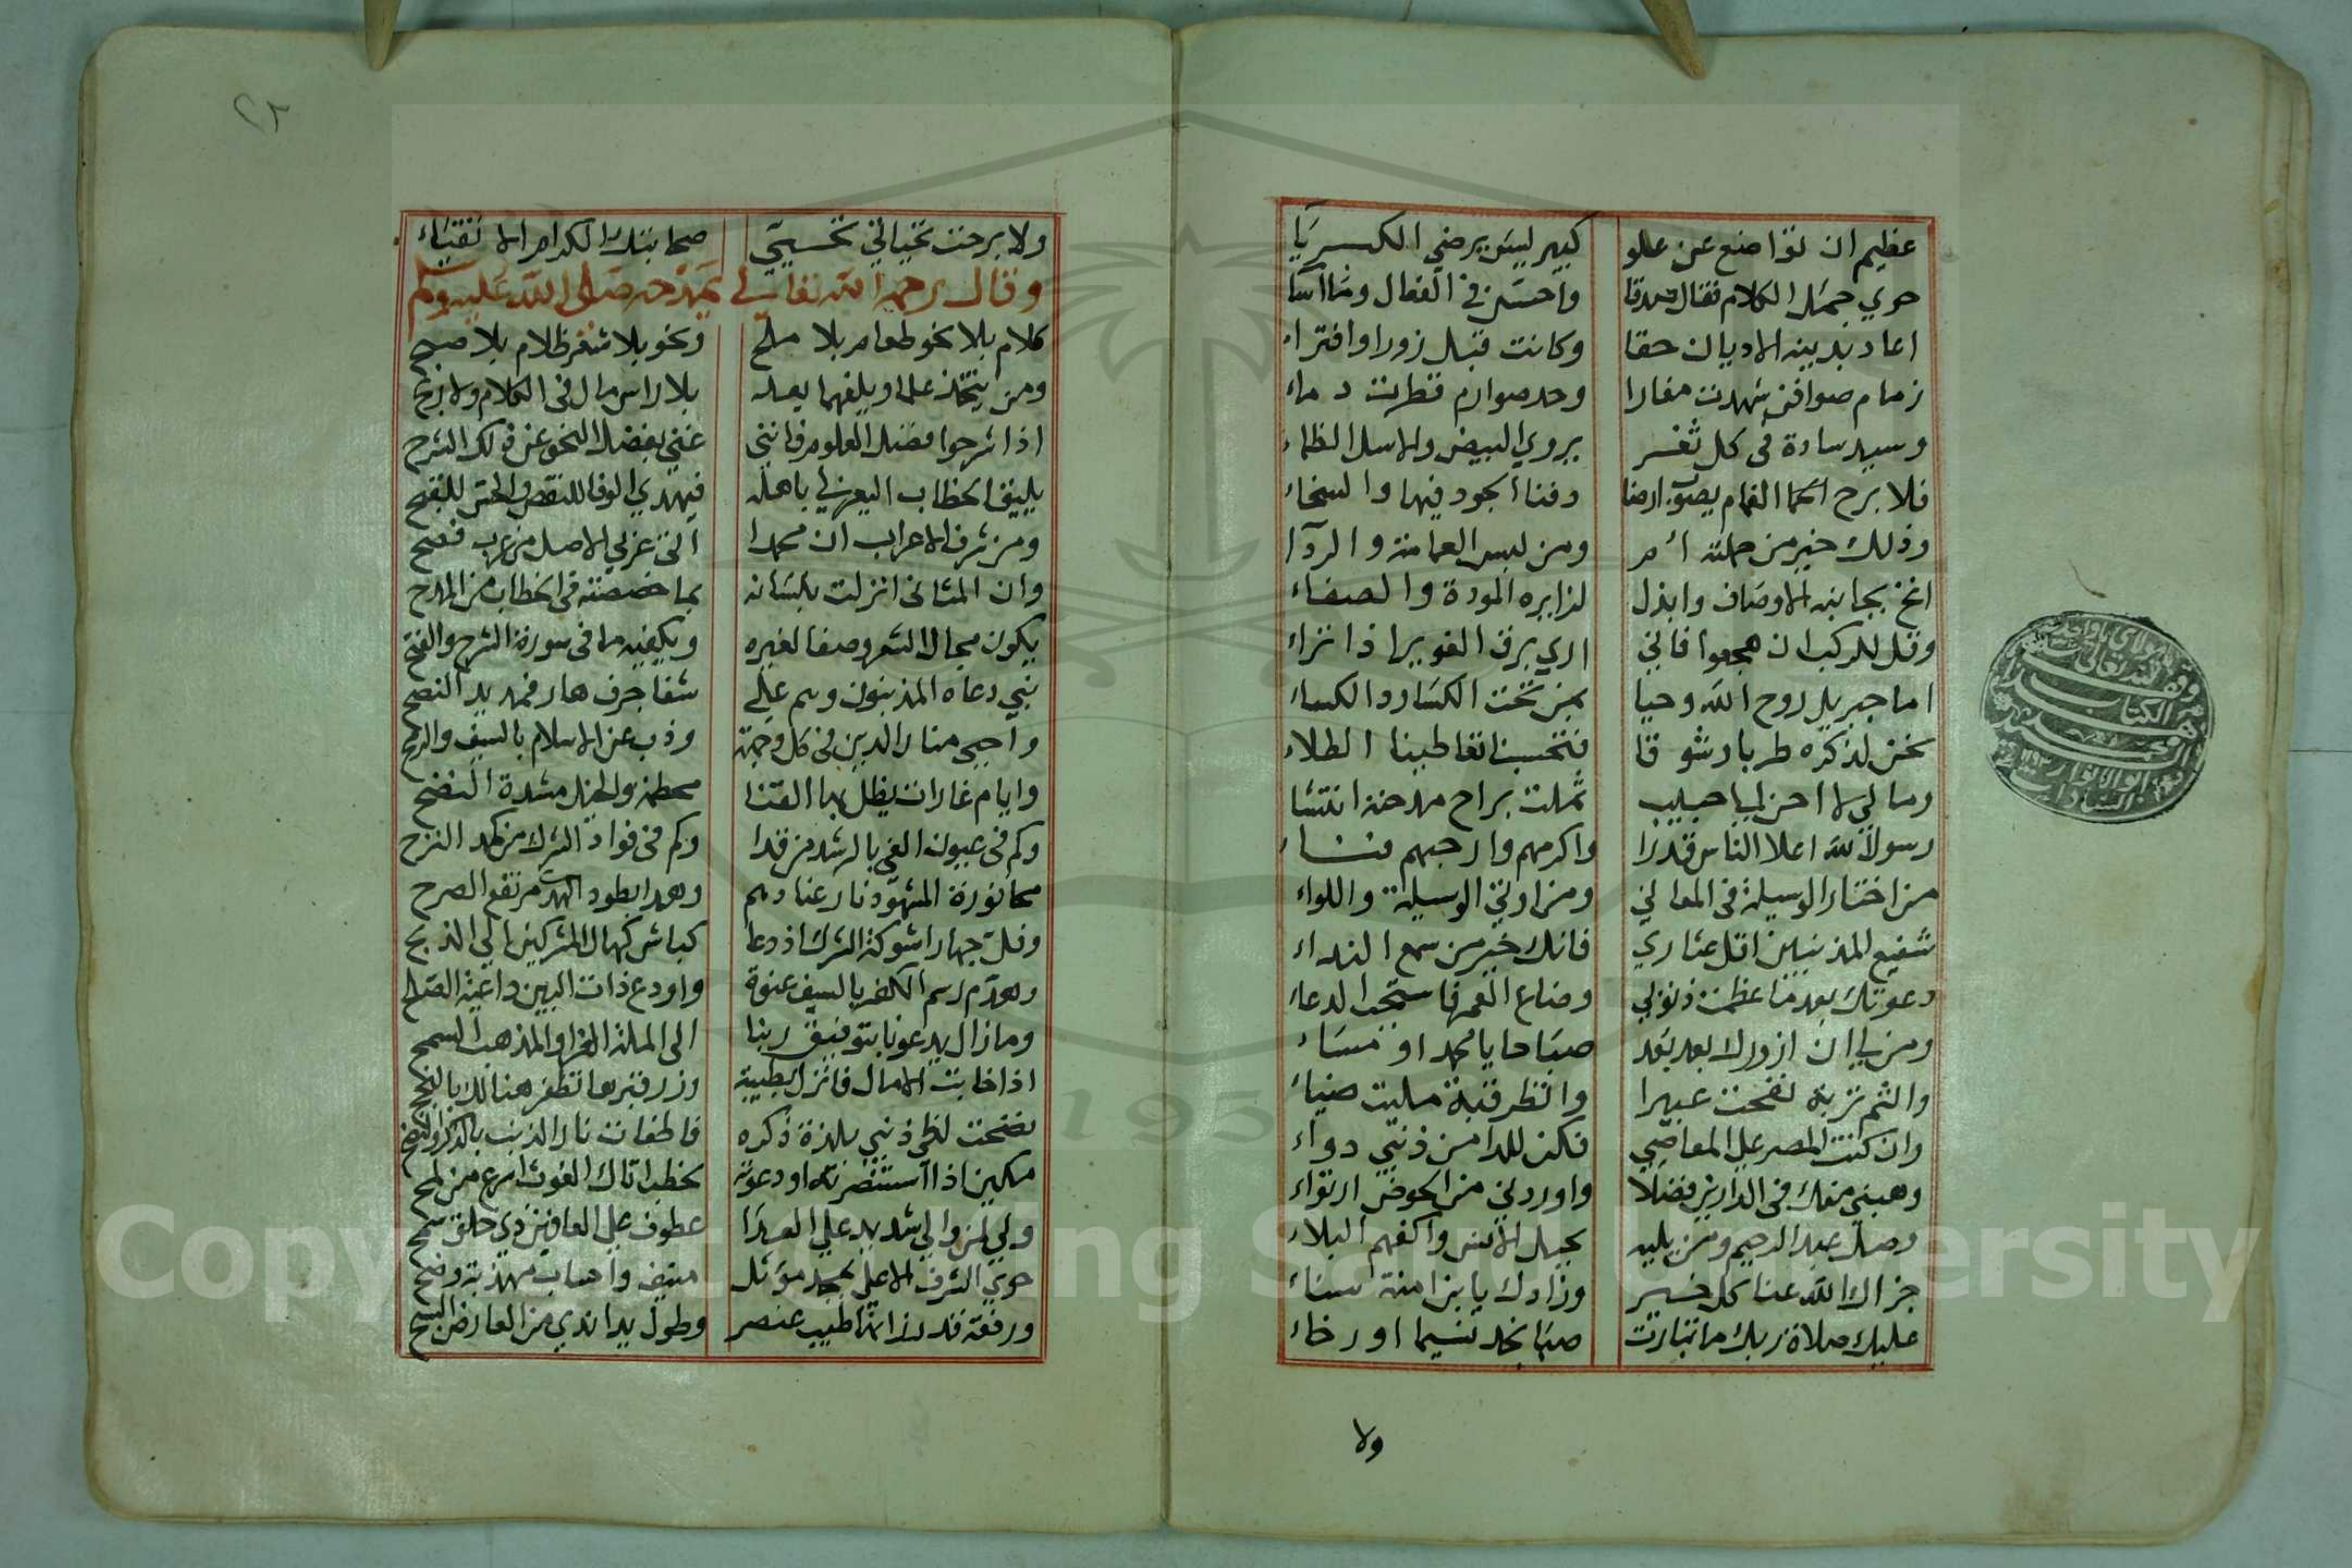 عظيم ان تواضع عن علو كبير ليس يرضي الكبريآ
حوي جمل الكلام فقال صدقا واحسن في الفعال وما اسآ
اعاد بدينه الاديان حقا وكانت قبل زورا وافتراء
زمام صوافن شهدت مغارا وحد صوارم قطرت دماء
وسيد سادة في كل ثغر يروي البيض والاسل الظماء
فلا برح الغمام يصوب ارضا وفنا الجود فيها والسخاء
وذلك خير من حملته ام ومن لبس العمامة والردآ
انخ بجانبه الاوصاف وابذل لزايره المودة والصفاء
وقل للركب ان هجعوا فاني اري برق الغوير اذا تراء
اما جبريل روح الله وحيا بمن تحت الكساء
نحن لذكره طربا وشوقا فتحسبنا تعاطينا الطلاء
ومالي لا احن الي حبيب ثملت براح مدحته انتشا
رسول الله اعلا الناس قدرا واكرمهم وارحبهم فناء
من اختار الوسيلة في المعالي ومن اوتي الوسيلة واللواء
شفيع المذنبين اقل عثاري فانك خير من سمع النداء
دعوتك بعدما عظمت ذنوبي وضاع العمر فاستجب الدعاء
ومن لي ان ازورك بعد بعد صباحا يا محمد او مساء
والثم تربة نفحت عبيرا وانظر قبة مليت ضياء
وان كنت المصر علي المعاصي فكن للدا من ذنبي دواء
وهبني منك في الدارين فضلا واوردني من الحوض ارتواء
وصل عبد الرحيم ومن يليه بحبل الانس واكفهم البلاء
جزاك الله عنا كل خير وزادك يا ابن امنة سناء
عليك صلاة ربك ما تبارت صبا نجد نسيما او رخاء
ولا
٢٢
ولا برحت تحياتي تحيي صحابتك الكرام الاتقياء
وقال رحمه الله تعالى يمدحه صلى الله عليه وسلم
كلام بلا نحو طعام بلا ملح ونحو بلا شعر ظلام بلا صبح
ومن يتخذ علما ويلغهما يعد بلا راس مال في الكلام ولا ربح
اذا شرحوا فضل العلوم فانني غني بفضل النحو عن ذلك الشرح
يليق الخطاب اليعربي باهله فيهدي الوفا للنقص والحسن للقبح
ومن شرف الاعراب ان محمدا اتى عربي الاصل من عرب فصح
وان المثاني انزلت بلسانه بما خصصته في الخطاب من المدح
يكون مجال الشعر وصفا لغيره ويكفيه ما في سورة الشرح والفتح
نبي دعاه المذنبون وهم علي شفا جرف هار فمد يد النصح
واحيي منار الدين في كل وجهة وذب عن الاسلام بالسيف والرمح
وايام غارات يظل بها القنا محطمة والخيل مشدة النضح
وكم في عيون الغي بالرشد من قذا وكم في فواد الشرك من كمد النزح
وهد ابطود الهدي مرتفع الصرح
وفل جهارا شوكة الشرك اذ دعا كباش كهال المشركين الي الذبح
وهدم رسم الكفر بالسيف عنوة واودع ذات البين داعية الصلح
وما زال يدعونا بتوفيق ربنا الى الملة الغرا والمذهب السمح
اذا خابت الامال فانزل بطيبة وزر قبرها تظفر هنالك بالنجح
نضحت لظي ذنبي بلذة ذكره فاطفات نار الذنب بالذكر والنضح
مكين اذا استنصرته او دعوته بخطب اتاك الغوث اسرع من لمح
ولي لمن والي شديد علي العدا عطوف علي العافين ذي خلق سمح
حوي الشرف الاعلي بمجد موثل منيف واحساب مهذبة وضح
ورفعة قدر زانها طيب عنصر وطول يد اندي من العارض السح
Copyright © King Saud University
195